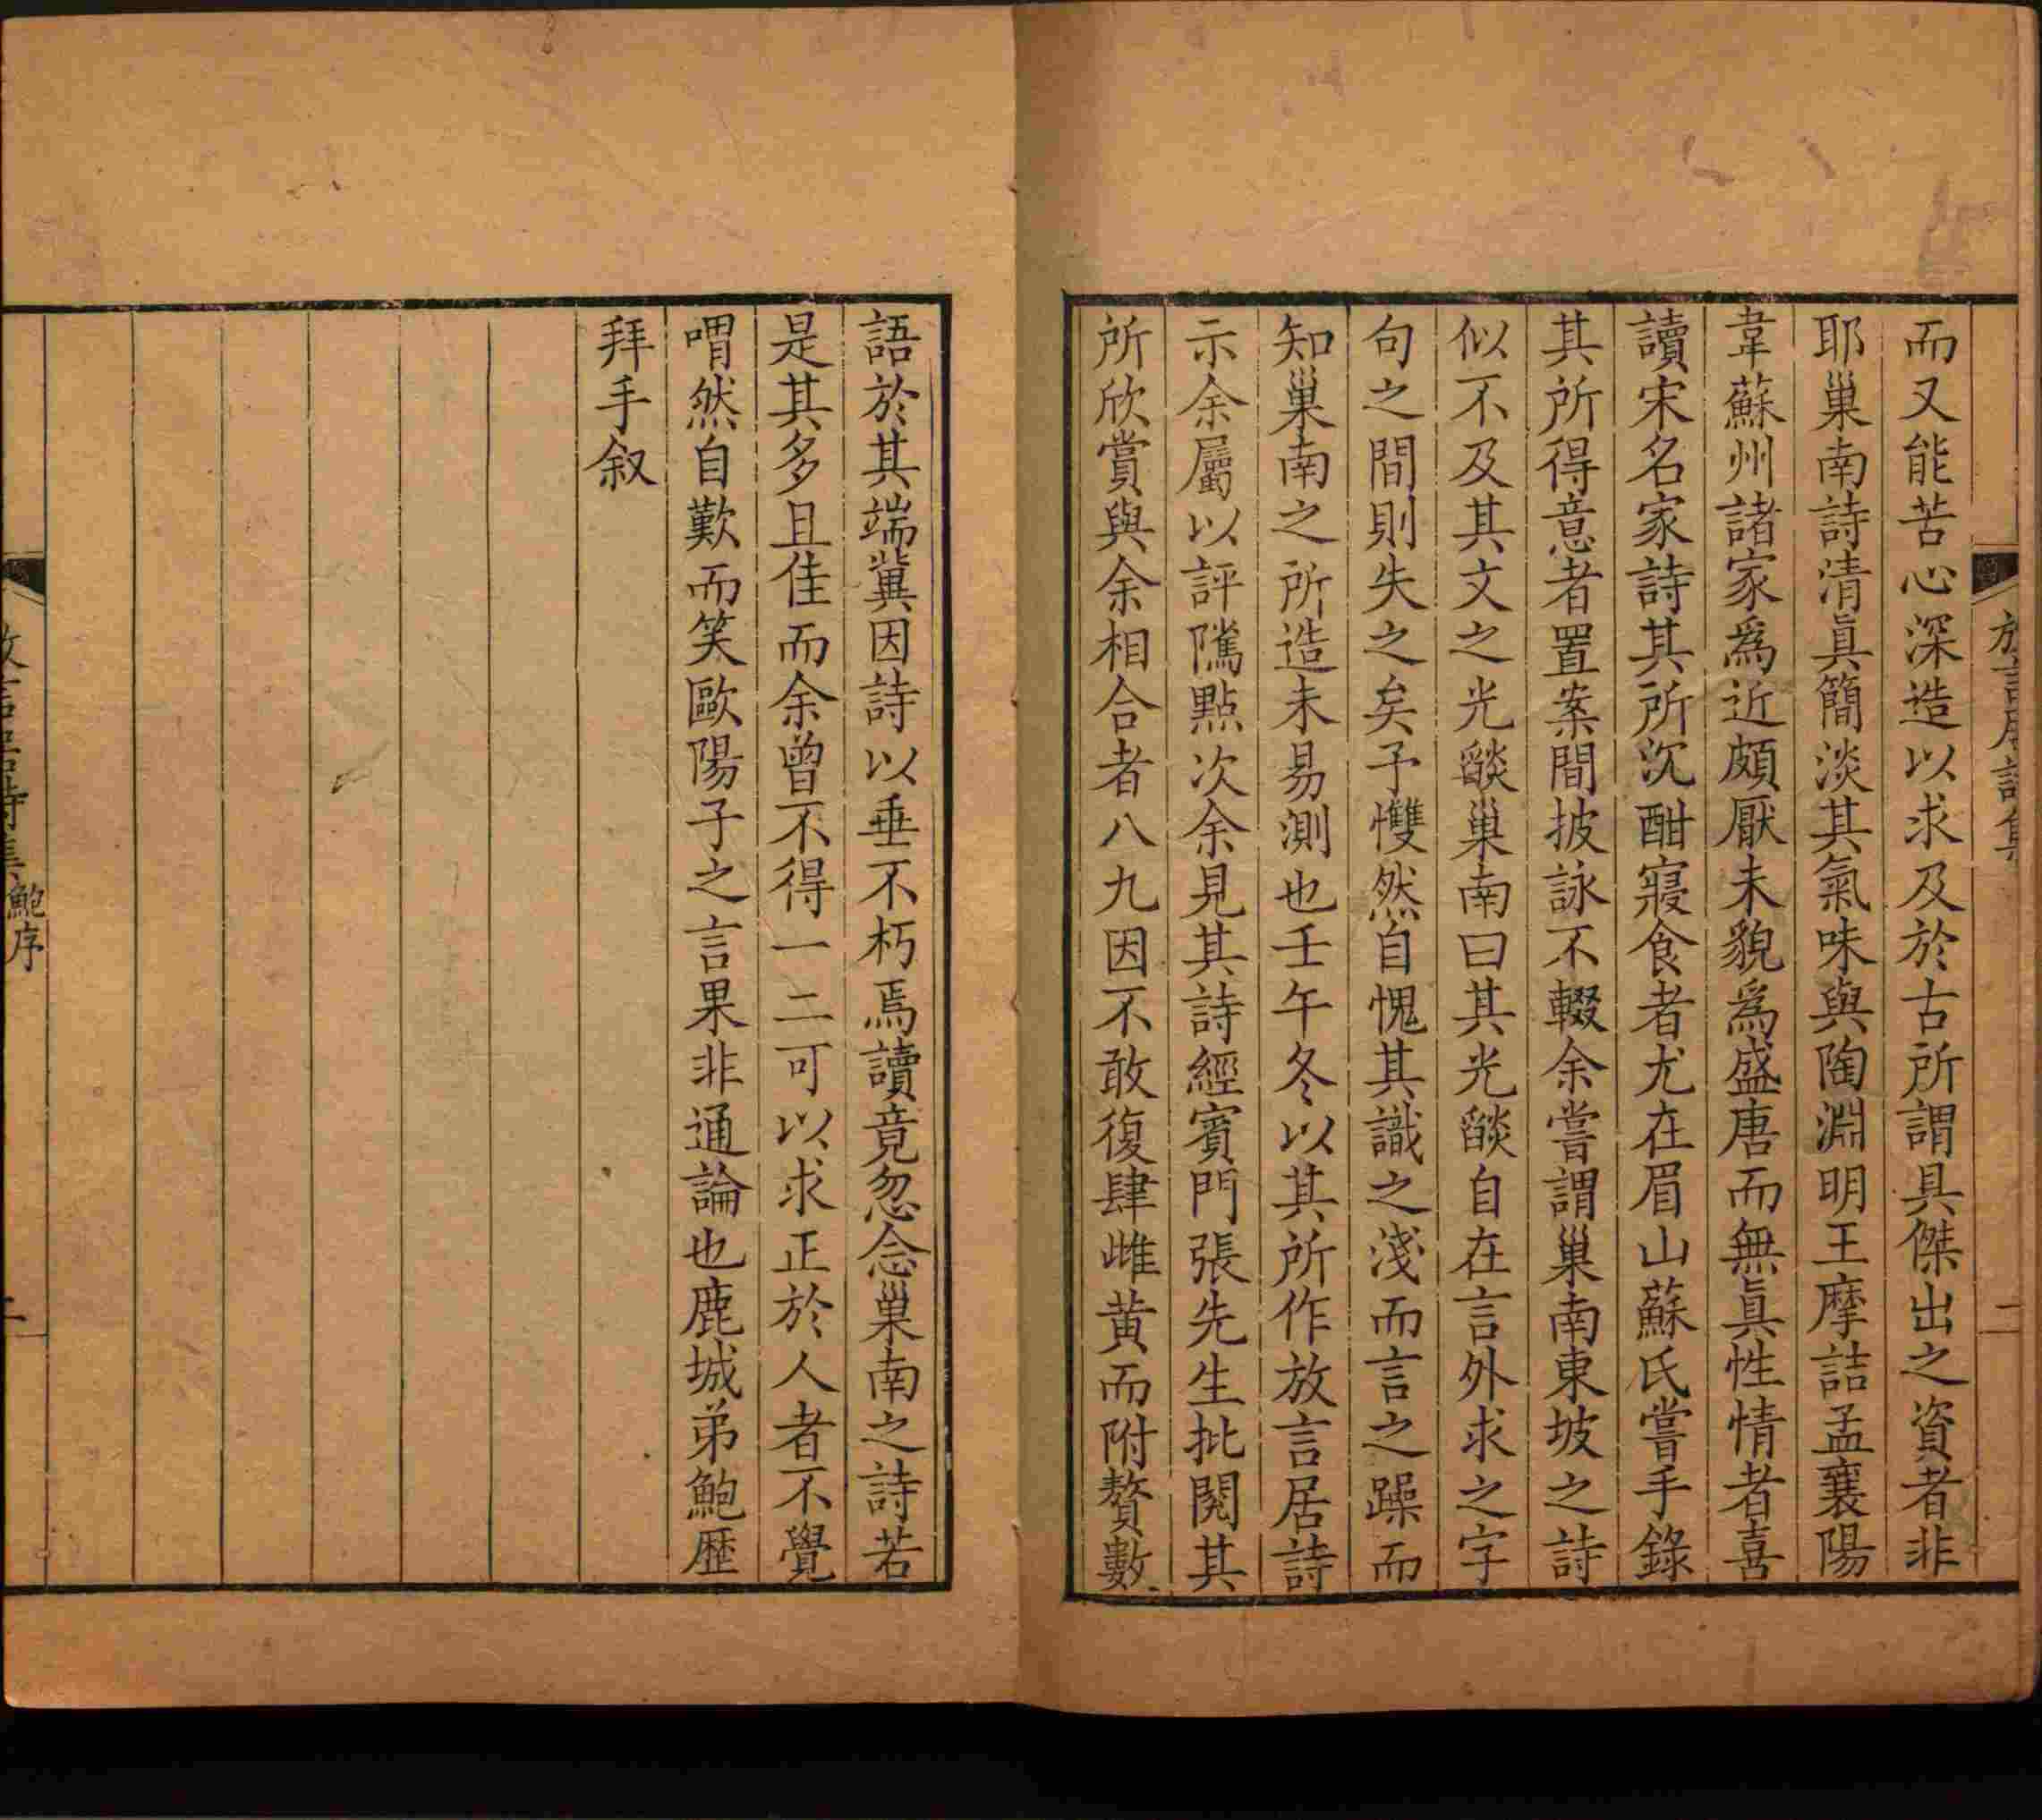 放言居詩集
二
而又能苦心深造以求及於古所謂具傑出之資者非
耶巢南詩清眞簡淡其氣味與陶淵明王摩詰孟襄陽
韋蘇州諸家爲近頗厭未貌爲盛唐而無眞性情者喜
讀宋名家詩其所沉酣寢食者尤在眉山蘇氏嘗手錄
其所得意者置案間披詠不輟余嘗謂巢南東坡之詩
似不及其文之光燄巢南曰其光燄自在言外求之字
句之間則失之矣予戄然自愧其識之淺而言之躁而
知巢南之所造未易測也壬午冬以其所作放言居詩
示余屬以評隲點次余見其詩經賓門張先生批閱其
所欣賞與余相合者八九因不敢復肆雌黄而附贅數
語於其端冀因詩以垂不朽焉讀竟忽念巢南之詩若
是其多且佳而余曾不得一二可以求正於人者不覺
喟然自歎而笑歐陽子之言果非通論也鹿城弟鮑歷
拜手叙
放言居詩集 鮑序